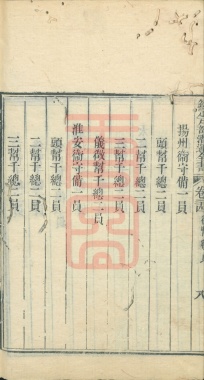 揚州衛守備一員
頭幫千總二員
二幫千總二員
三幫千總二員
儀徵幫千總二員
淮安衛守備一員
頭幫千總二員
二幫千總二員
三幫千總二員